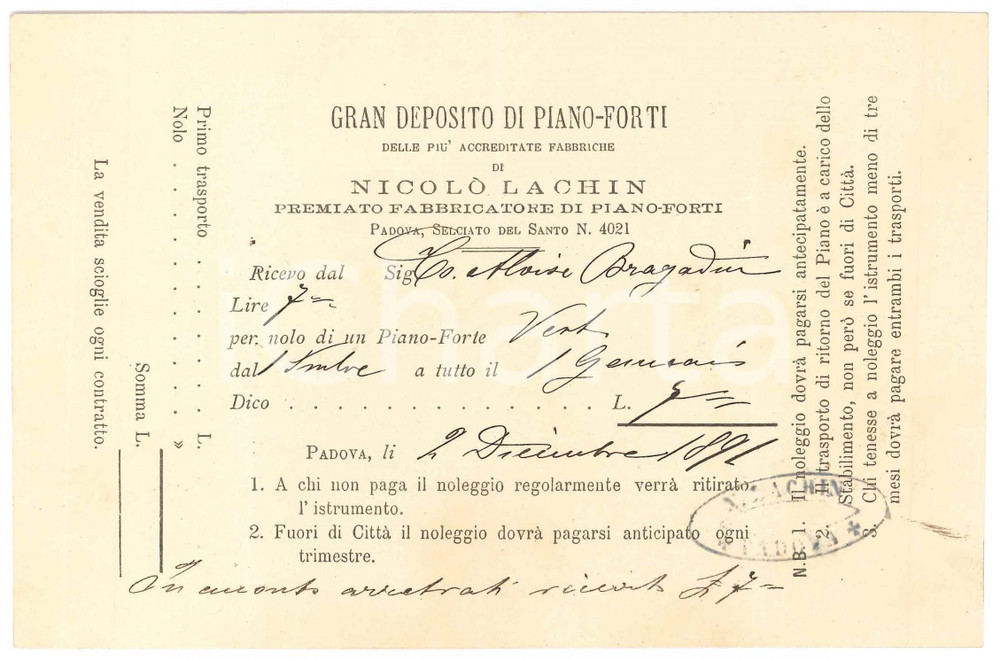 GRAN DEPOSITO DI PIANO-FORTI
DELLE PIU' ACCREDITATE FABBRICHE
DI
NICOLÒ LACHIN
PREMIATO FABBRICATORE DI PIANO-FORTI
PADOVA, SELCIATO DEL SANTO N. 4021
Ricevo dal Sig Co. Aloise Bragadin
Lire 7 =
per nolo di un Piano-Forte Vert.
dal 1 a tutto il 1 Gennaio
Dico . . . . . . . . . . . . . . L. 7 =
PADOVA, li 2 Dicembre 1891
1. A chi non paga il noleggio regolarmente verrà ritirato
l'istrumento.
2. Fuori di Città il noleggio dovrà pagarsi anticipato ogni
trimestre.
In acconto arretrati ricevo £ 7 =
Primo trasporto . . . . . . L.
Nolo . . . . . . . . . . . . . . . »
Somma L.
La vendita scioglie ogni contratto.
N.B. 1. Il noleggio dovrà pagarsi antecipatamente.
2. Il trasporto di ritorno del Piano è a carico dello
Stabilimento, non però se fuori di Città.
3. Chi tenesse a noleggio l'istrumento meno di tre
mesi dovrà pagare entrambi i trasporti.
N. LACHIN
PADOVA